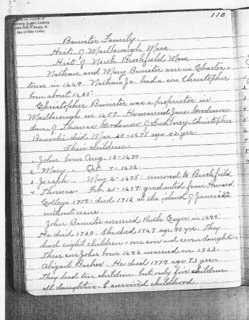 110
Banister Family
Hist. of Marlborough Mass
Hist. of North Brookfield Mass
Nathan and Mary Banister were in Charles-
town in 1649. Nathan Jr. had a son Christopher
born about
Christopher Banister was a proprietor in
Marlborough in 1657. He married Jane Goodenow
dau. of Thomas Goodenow of Sudbury. Christopher
Banister died Mar 30 1678 age
Their children
1 John born Aug. 12 1670
2 Mary Oct. 7 1672
3 Joseph May 2 1675 removed to Brookfield
4 Thomas Feb. 21 1677 graduated from Harvard
College 1700 died 1716 at the island of Jamaica
without issue
John Banister married Ruth Eager in 1695
He died 1730. She died 1767 age 90 yrs. They
had eight children - one son and seven daughters
Their son John born married in
Abigail Barker. He died 1772 age
They had ten children but only five children
all daughters survived childhood.